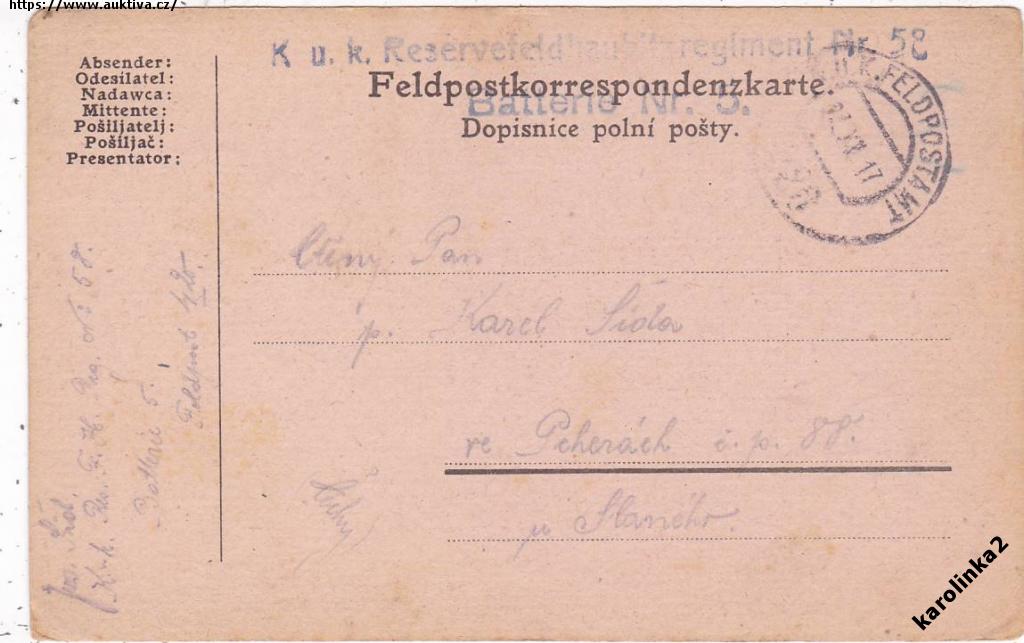 https://www.auktiva.cz/
K. u. k. Reservefeldhaubitzregiment Nr. 58
Batterie Nr. 5.
Absender:
Odesílatel:
Nadawca:
Mittente:
Pošiljatelj:
Pošiljač:
Presentator:
Feldpostkorrespondenzkarte.
Dopisnice polní pošty.
K.u.K. FELDPOSTAMT
XII. 17
Ctěný Pan
p. Karel Šída
ve Pcherách č.p. 88.
u Slaného.
K. u. k. Res. F. H. Reg. No 58.
Batterie 5.
Feldpost
karolinka2